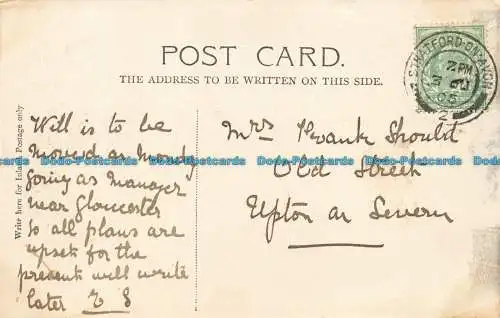 POST CARD.
THE ADDRESS TO BE WRITTEN ON THIS SIDE.
STRATFORD-ON-AVON
2 PM
05
2
Write here for Inland Postage only
Will is to be
moved on Mondy
going as manager
near Gloucester
so all plans are
upset for the
present will write
later E S
Mrs Frank Should
Old Street
Upton on Severn
Dodo-Postcards Dodo-Postcards Dodo-Postcards Dodo-Postcards Dodo-Postcards